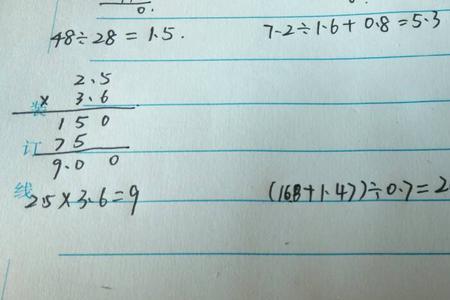 0.
48÷28=1.5.
7.2÷1.6+0.8=5.3
2.5
× 3.6
150
75
9.00
装
订
线
2.5×3.6=9
(168+1.47)÷0.7=2